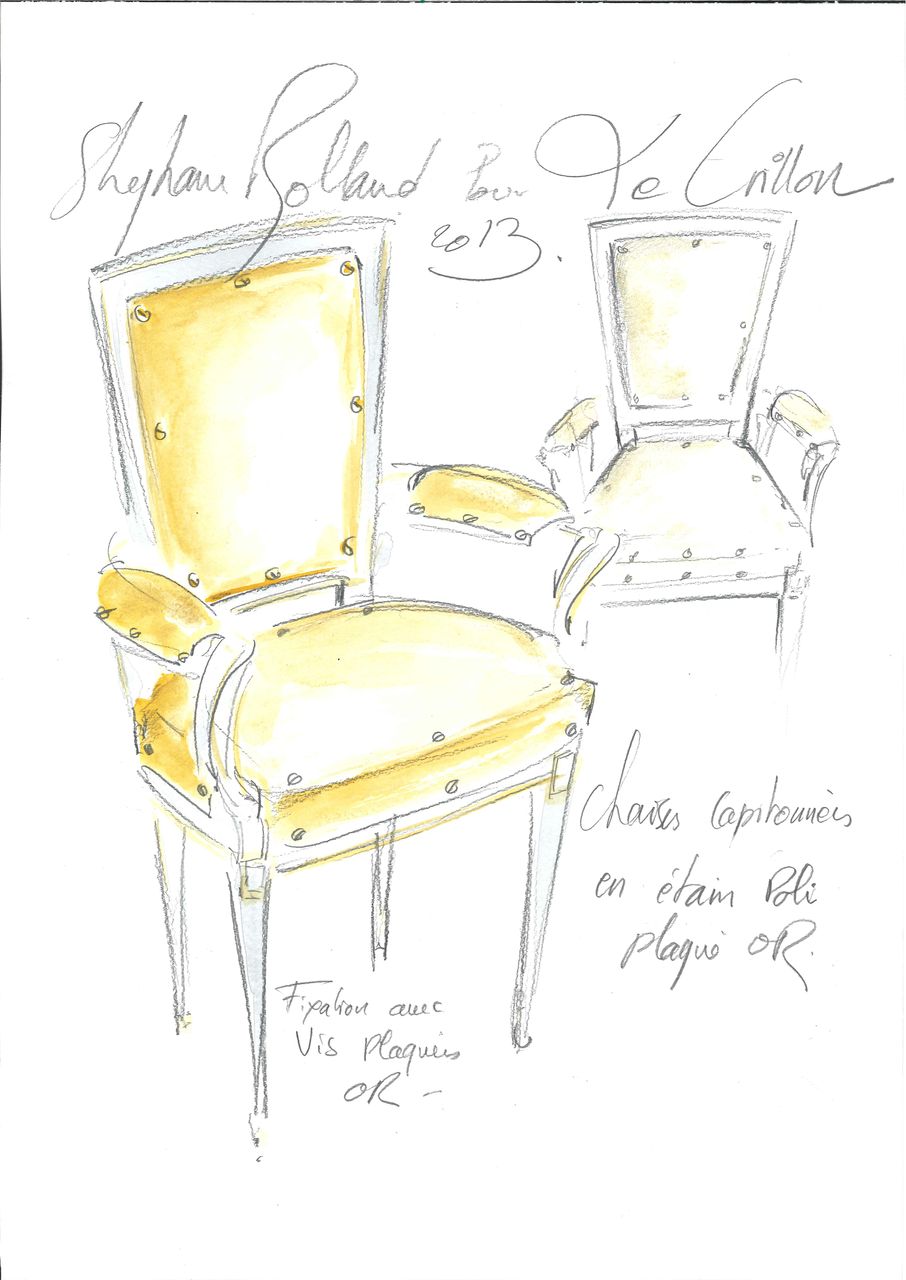 Stéphane Rolland Pour Le Crillon
2013.
Chaises Capitonnées
en étain Poli
plaqué OR.
Fixation avec
Vis plaquées
OR -